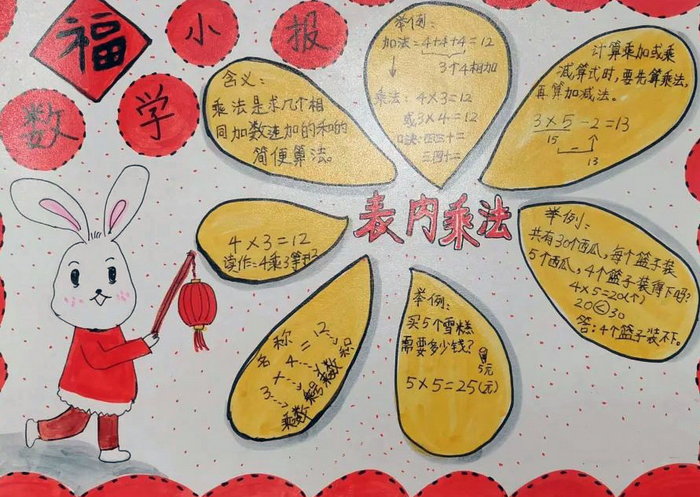 福
小
报
数
学
含义：
乘法是求几个相
同加数连加的和的
简便算法。
举例：
加法：4+4+4=12
3个4相加
乘法：4×3=12
或3×4=12
口诀：四三十二
三四十二
计算乘加或乘
减算式时，要先算乘法，
再算加减法。
3×5-2=13
15
13
表内乘法
4×3=12
读作：4乘3等于12
举例：
共有30个西瓜，每个篮子装
5个西瓜，4个篮子装得下吗？
4×5=20(个)
20<30
答：4个篮子装不下。
名称
3×4=12
乘数 乘号 乘数 积
举例：
买5个雪糕
需要多少钱？
5元
5×5=25(元)